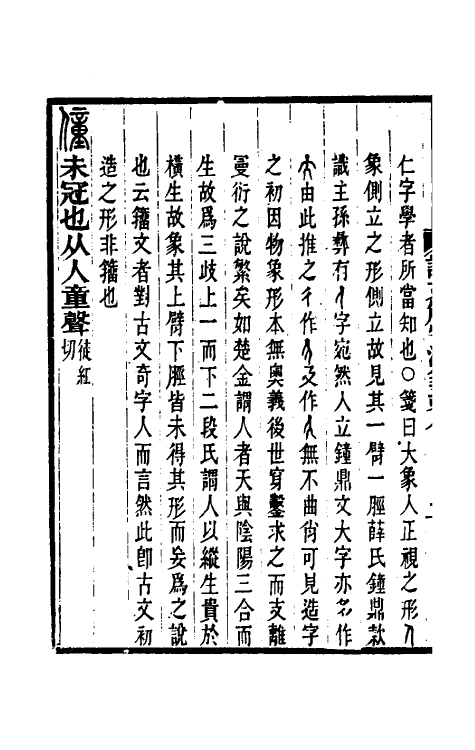 仁字學者所當知也〇箋曰大象人正視之形人
象側立之形側立故見其一臂一脛薛氏鐘鼎款
識主孫彝有人字宛然人立鐘鼎文大字亦作
由此推之作作無不曲肖可見造字
之初因物象形本無奧義後世穿鑿求之而支離
蔓衍之說繁矣如楚金謂人者天與陰陽三合而
生故爲三歧上一而下二段氏謂人以縱生貴於
橫生故象其上臂下脛皆未得其形而妄爲之說
也云籀文者對古文奇字人而言然此卽古文初
造之形非籀也
僮未冠也从人童聲徒紅切